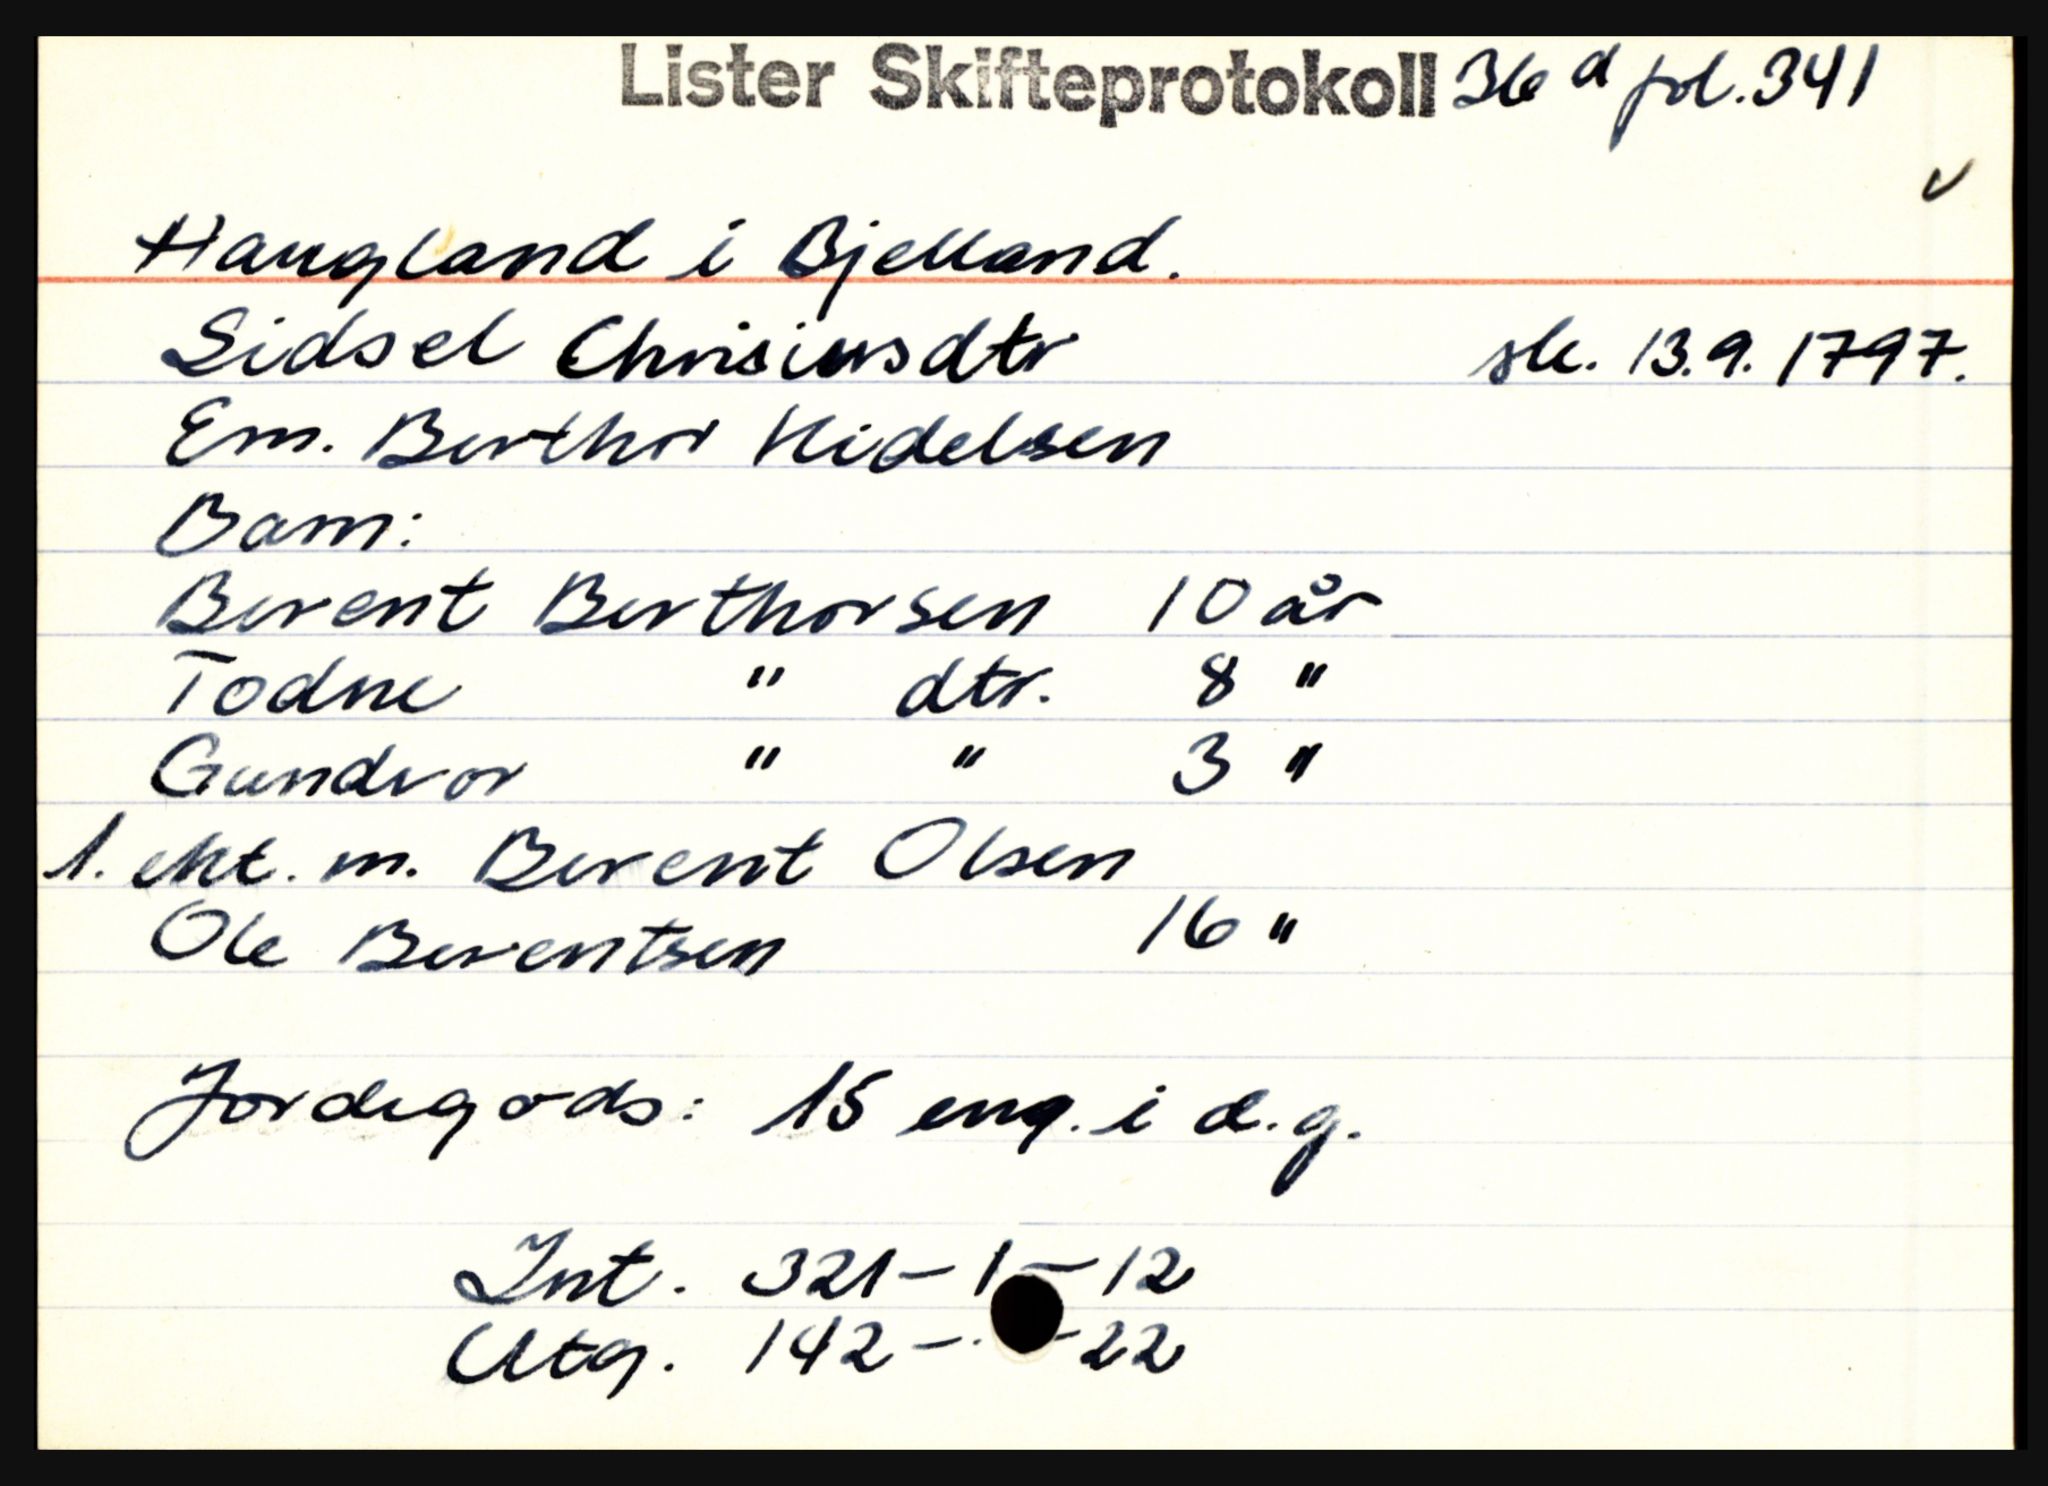 Lister Skifteprotokoll 36 d fol. 341
v
Haugland i Bjelland.
Sidsel Chrisiusdtr sk. 13.9.1797.
Em. Berthor Kidelsen
Barn:
Berent Berthorsen 10 år
Todne " dtr. 8 "
Gundvor " " 3 "
1. ekt. m. Berent Olsen
Ole Berentsen 16 "
Jordegods: 15 eng. i d.g.
Int. 321 - 1 - 12
Utg. 142 - - 22